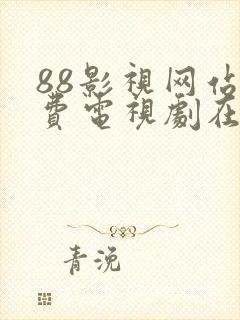 88影視网佔
費電視劇在
青浼